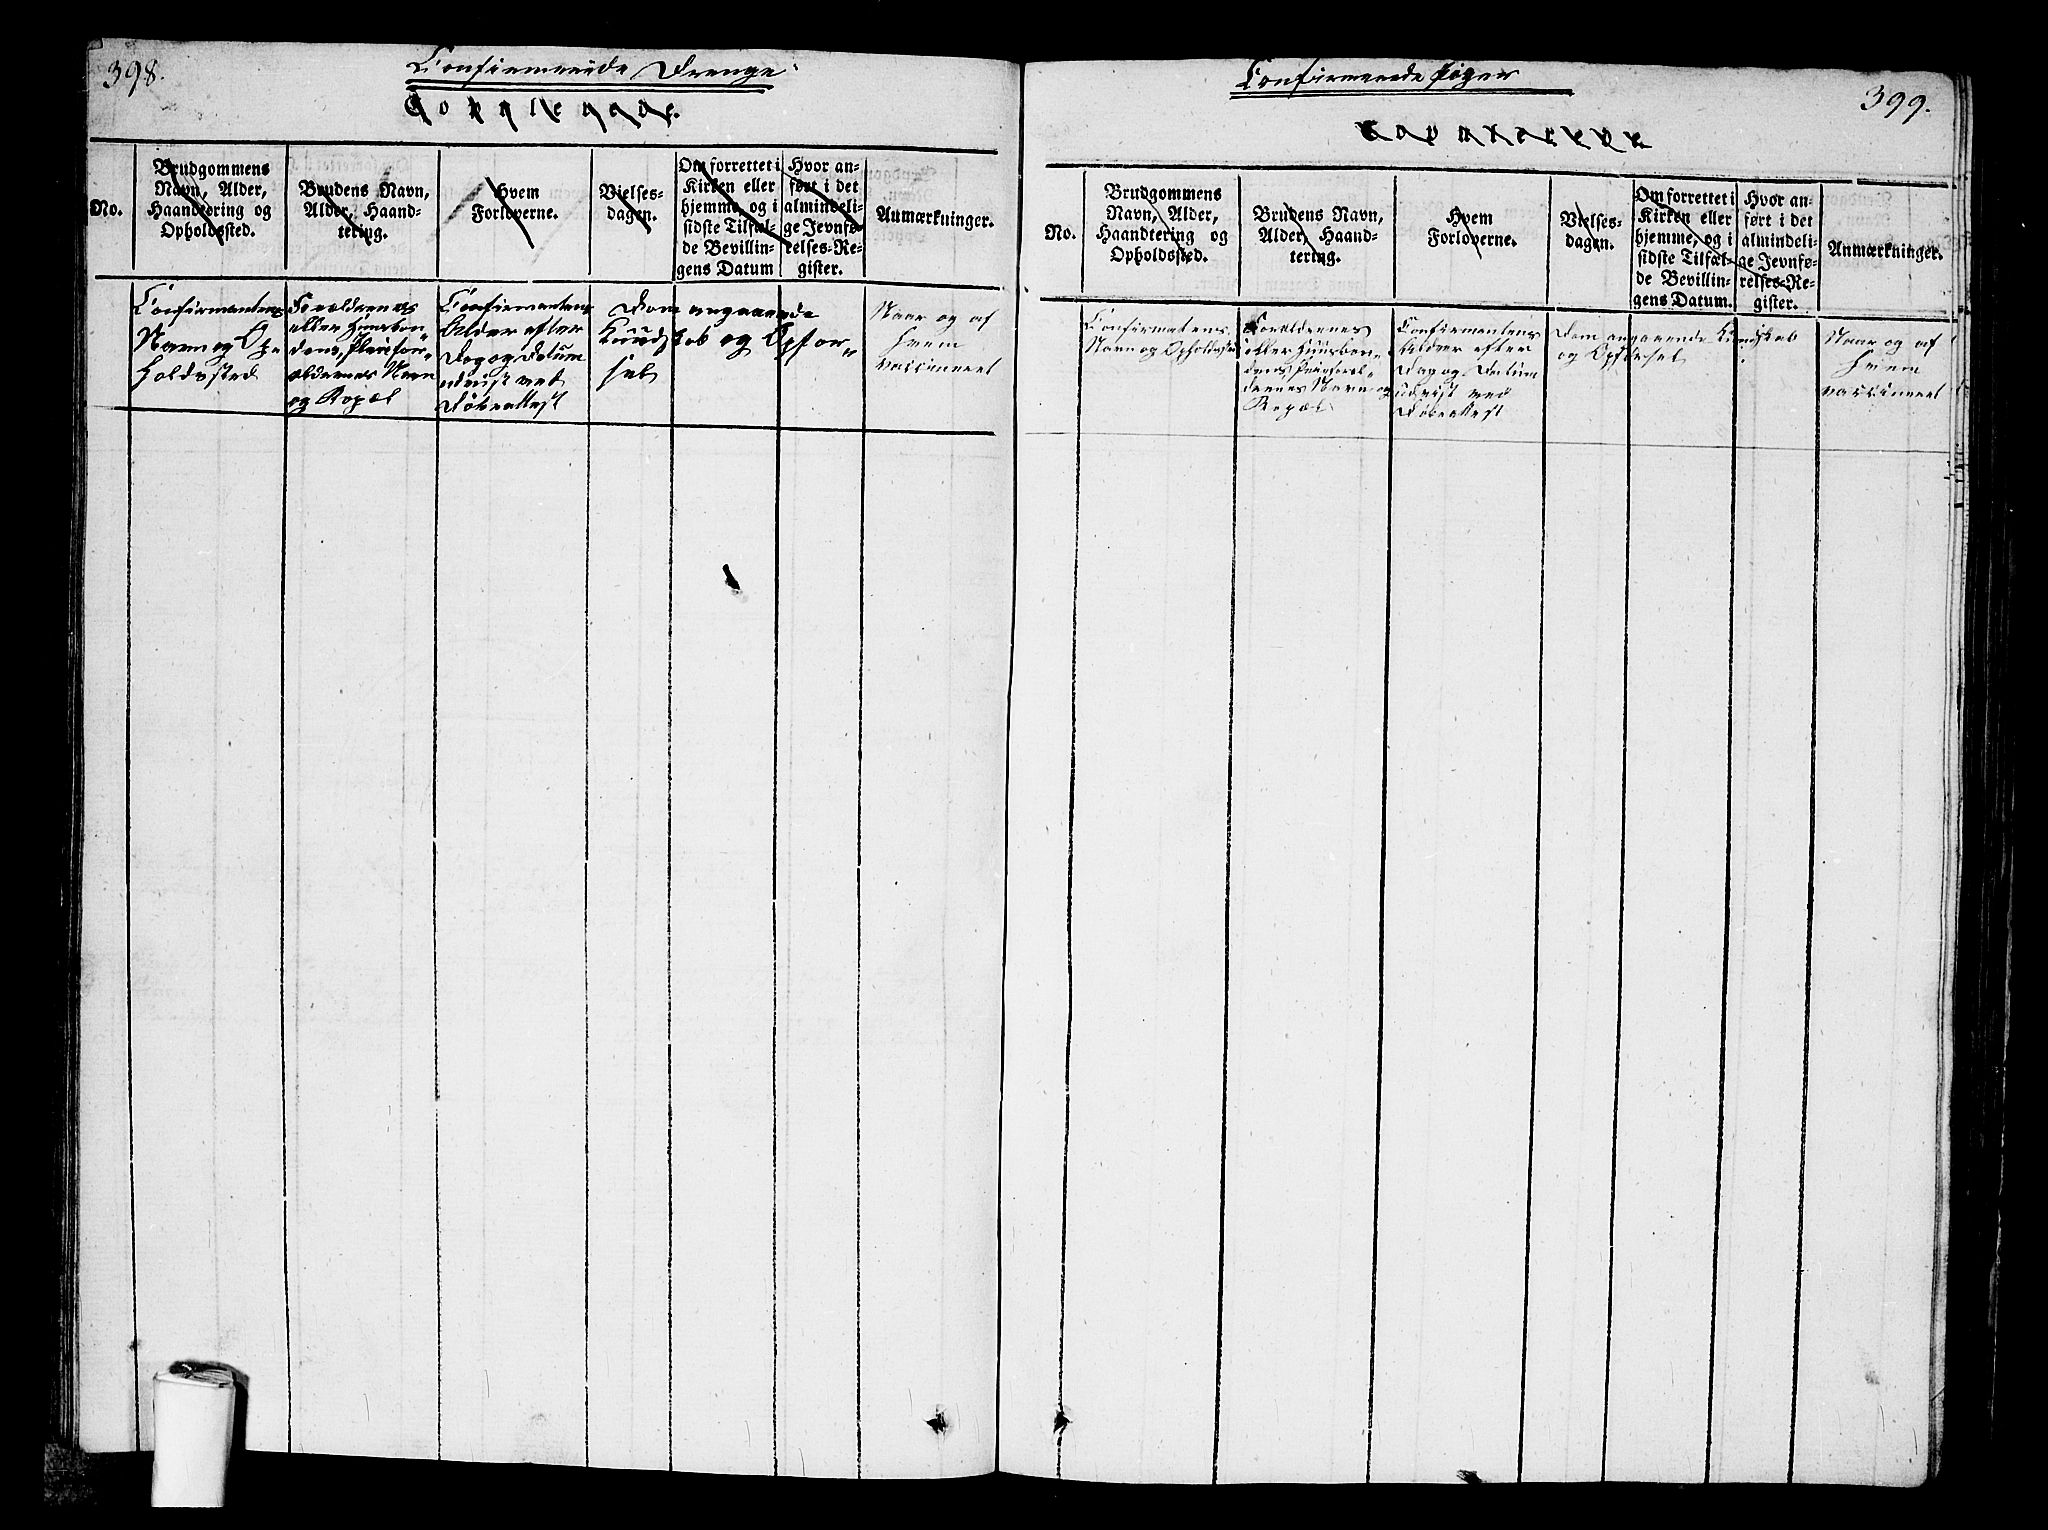 398.
Confirmerede Drenge
Copulerede.
No.
Brudgommens
Navn, Alder,
Haandtering og
Opholdssted.
Brudens Navn,
Alder, Haand-
tering.
Hvem
Forloverne.
Vielses-
dagen.
Om forrettet i
Kirken eller
hjemme, og i
sidste Tilfæl-
de Bevillin-
gens Datum
Hvor an-
ført i det
almindeli-
ge Jevnfø-
relses-Re-
gister.
Anmærkninger.
Confirmantens
Navn og Op-
holdssted
Forældrenes
eller Huusbon-
dens, Pleiefor-
ældrenes Navn
og Bopæl
Confirmantens
Alder efter
Dag og Datum
udviist ved
Døbeattest
Dom angaaende
Kundskab og Opfør-
sel
Naar og af
hvem
vaccineret
399.
Confirmerede Piger
Copulerede
No.
Brudgommens
Navn, Alder,
Haandtering og
Opholdssted.
Brudens Navn,
Alder, Haand-
tering.
Hvem
Forloverne.
Vielses-
dagen.
Om forrettet i
Kirken eller
hjemme, og i
sidste Tilfæl-
de Bevillin-
gens Datum.
Hvor an-
ført i det
almindeli-
ge Jevnfø-
relses-Re-
gister.
Anmærkninger.
Confirmatens
Navn og Opholdssted
Forældrenes
eller Huusbon-
dens, Pleieforæl-
drenes Navn og
Bopæl
Confirmantens
Alder efter
Dag og Datum
udvist ved
Døbeattest
Dom angaaende Kundskab
og Opførsel
Naar og af
hvem
vaccineret